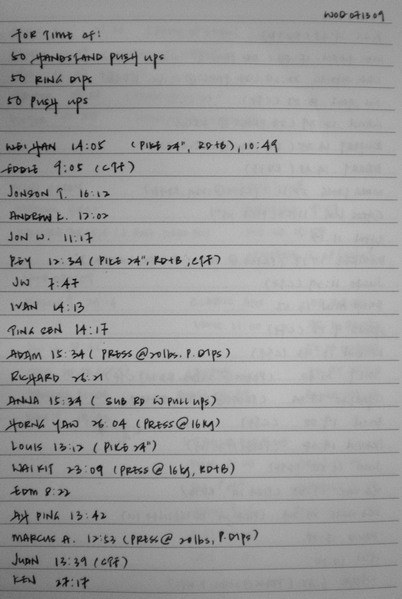 WOD 071309
FOR TIME OF:
50 HANDSTAND PUSH UPS
50 RING DIPS
50 PUSH UPS
WEIHAN 14:05 (PIKE 24", RD+B), 10:49
EDDIE 9:05 (CFT)
JONSON T. 16:12
ANDREW L. 12:02
JON W. 11:17
PEY 12:34 (PIKE 24", RD+B, CFT)
JW 7:47
IVAN 14:13
PING CEN 14:17
ADAM 15:34 (PRESS @ 20lbs, P. DIPS)
RICHARD 26:21
ANNA 15:34 (SUB RD W PULL UPS)
HORNG YAW 26:04 (PRESS @ 16kg)
LOUIS 13:12 (PIKE 24")
WAI KIT 23:09 (PRESS @ 16kg, RD+B)
EDM 8:22
AH PING 13:42
MARCUS A. 12:53 (PRESS @ 20lbs, P. DIPS)
JUAN 13:39 (CFT)
KEN 27:17